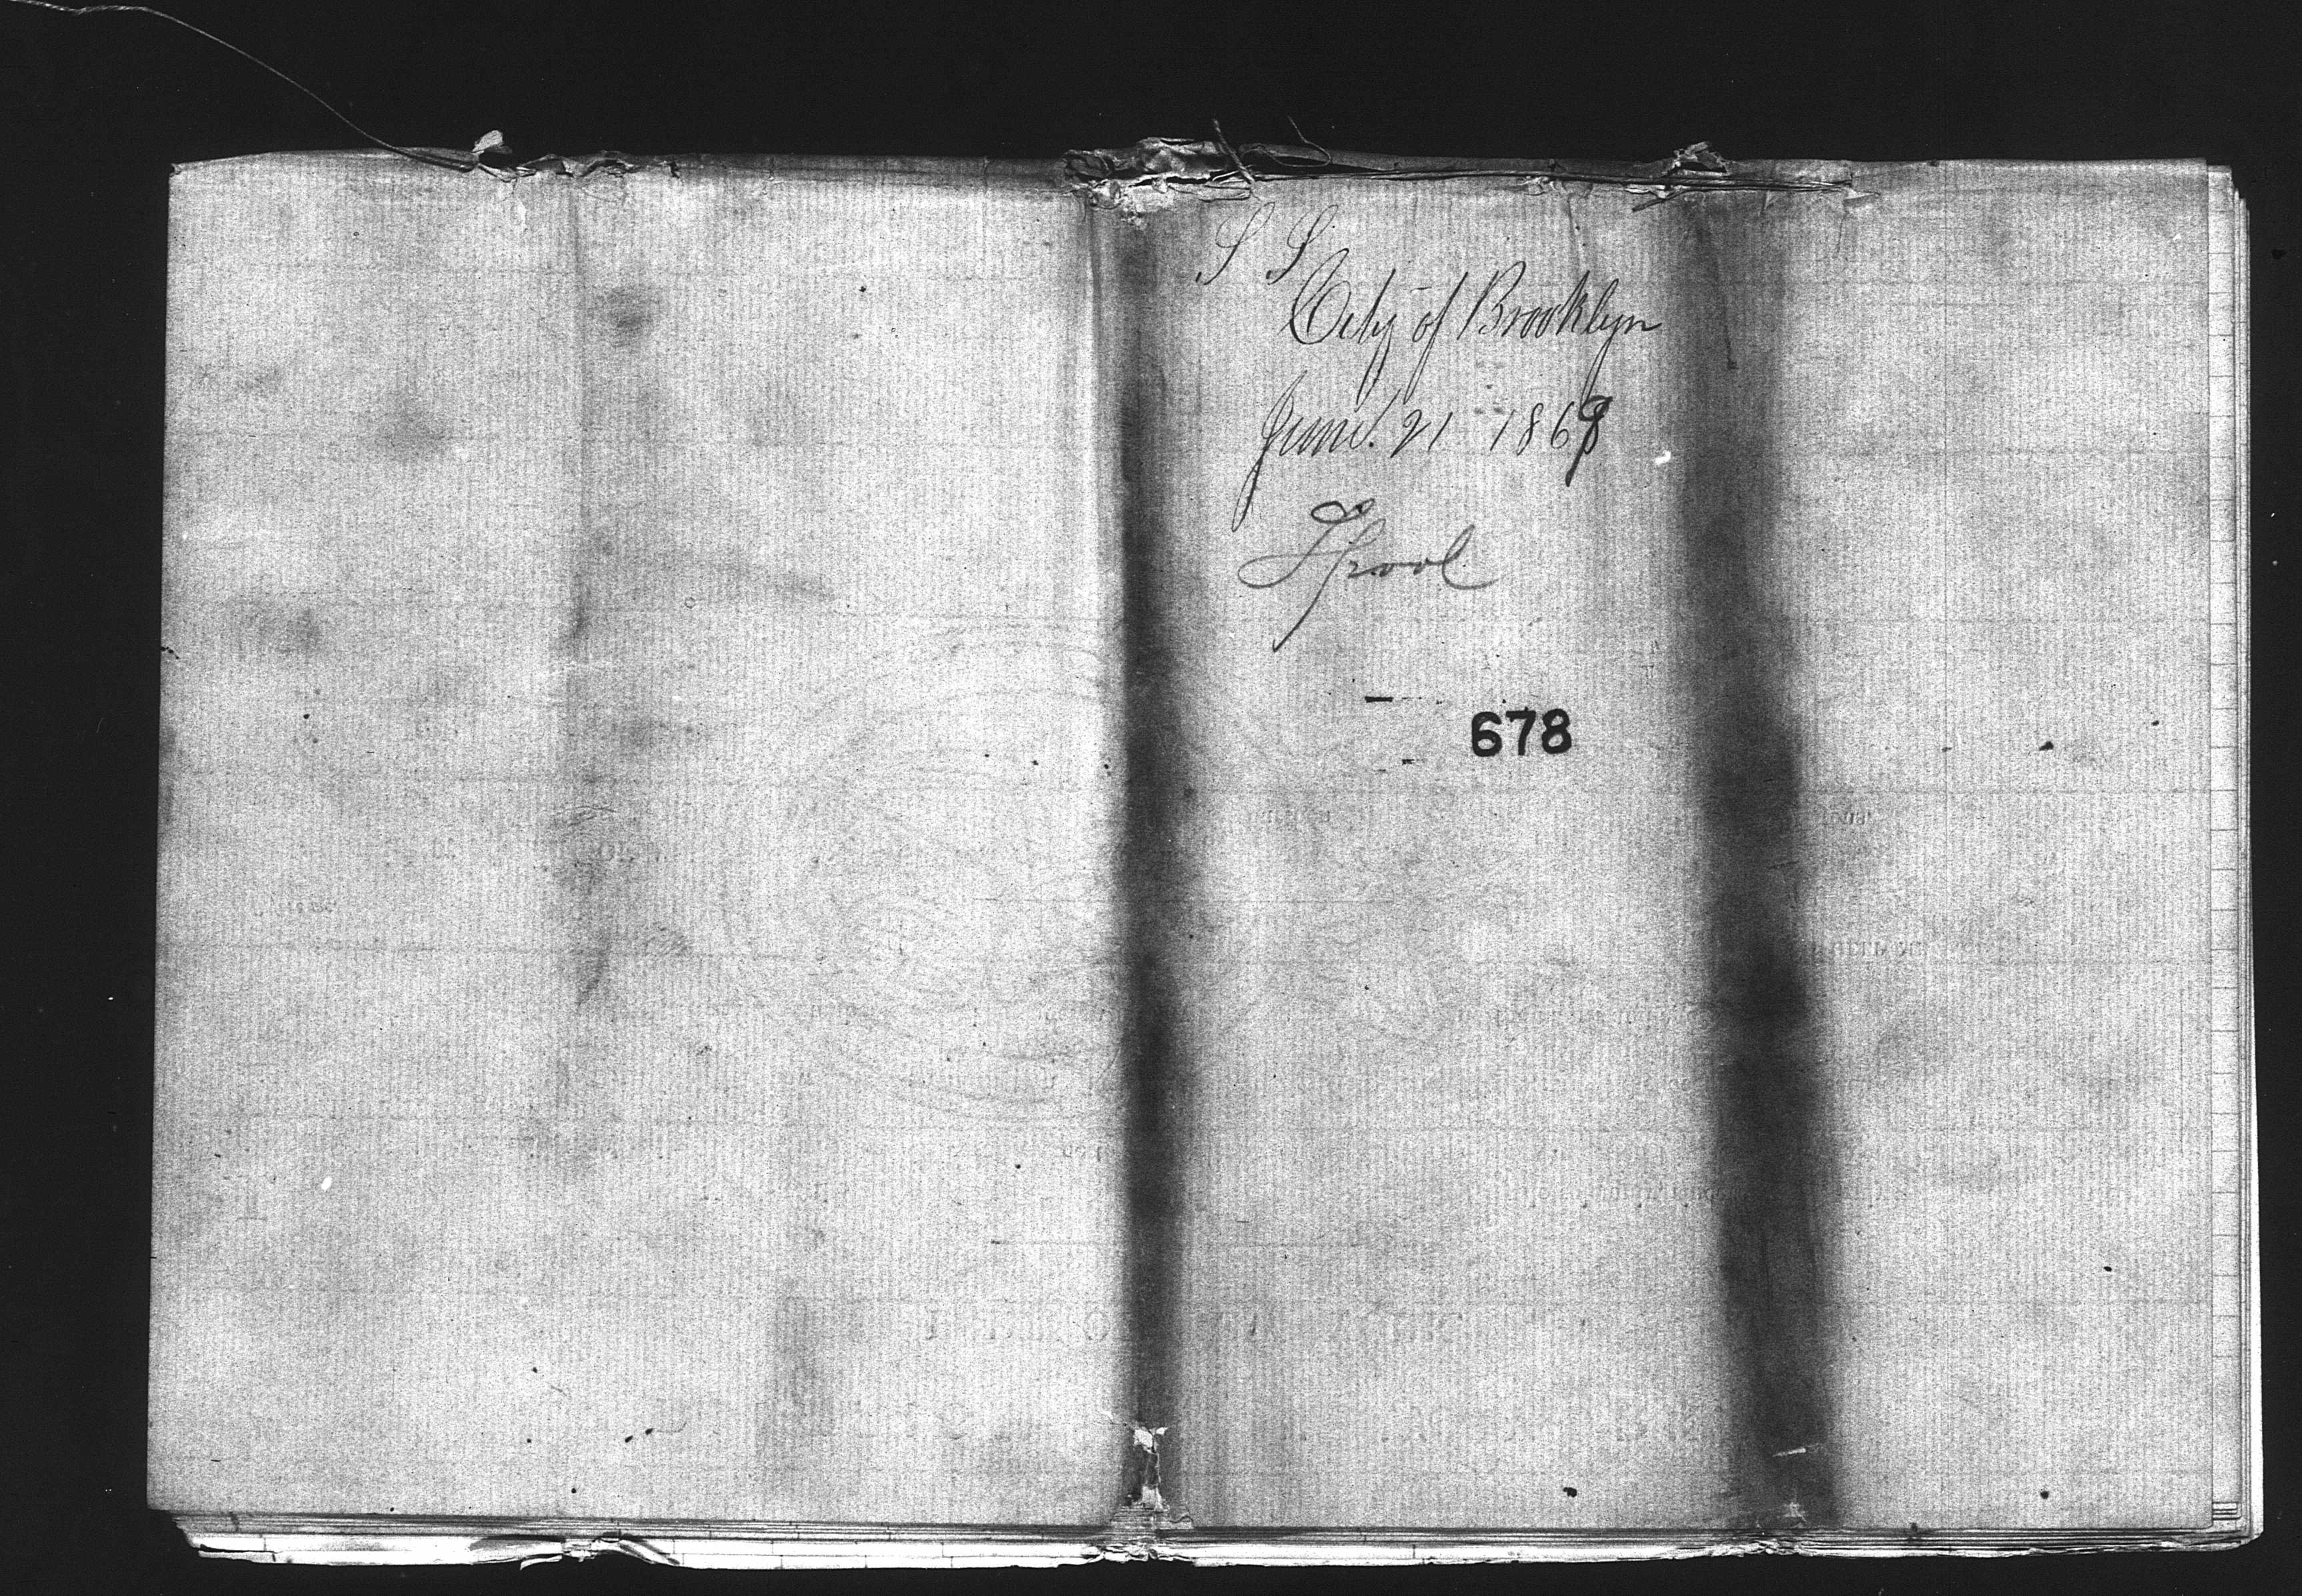 S S
City of Brooklyn
June 21 1869
L'pool
678